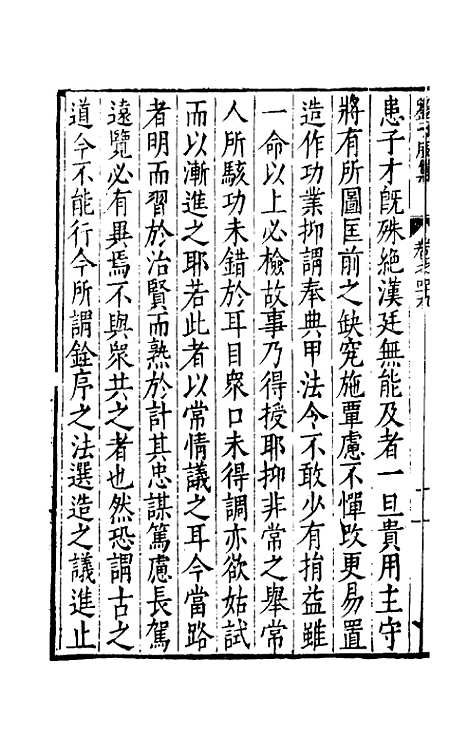 患子才旣殊絶漢廷無能及者一旦貴用主守
將有所圖匡前之缺究施覃慮不憚改更易置
造作功業抑謂奉典甲法令不敢少有捐益雖
一命以上必檢故事乃得授耶抑非常之舉常
人所駭功未錯於耳目衆口未得調亦欲姑試
而以漸進之耶若此者以常情議之耳今當路
者明而習於治賢而熟於計其忠謀篤慮長駕
遠覽必有畢焉不與衆共之者也然恐謂古之
道今不能行今所謂銓序之法選造之議進止